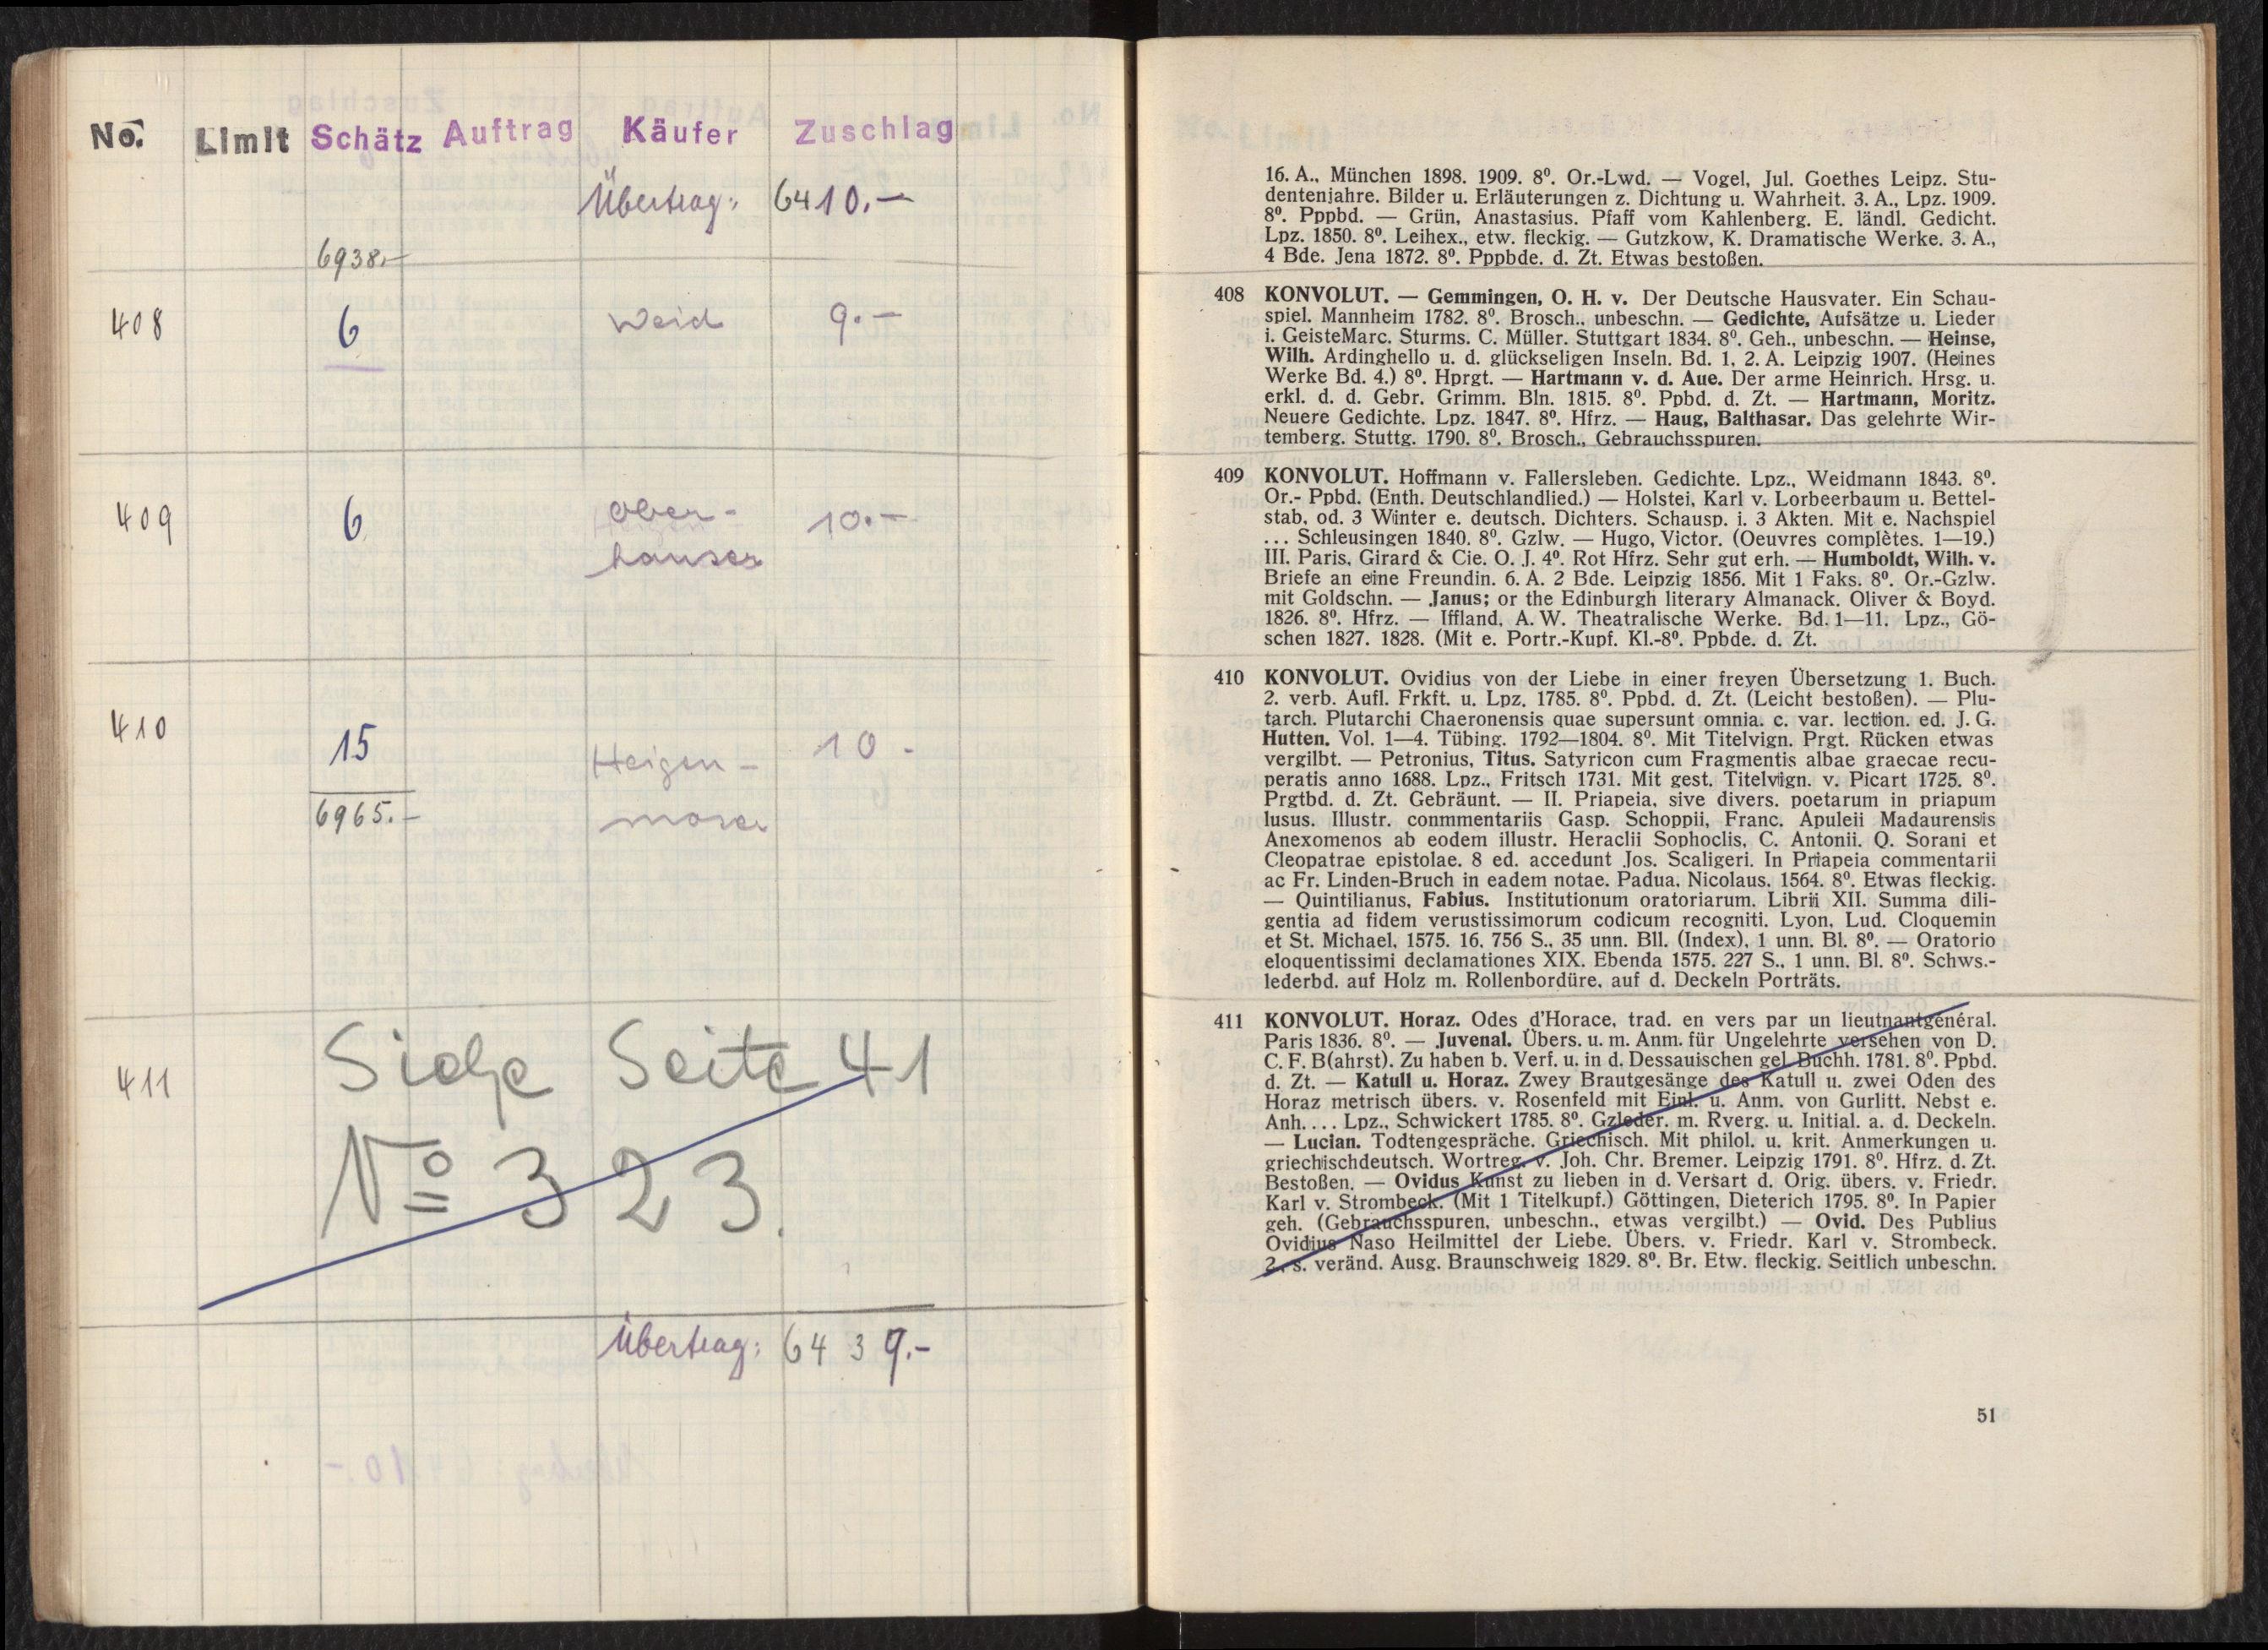 No. Limit Schätz Auftrag Käufer Zuschlag
Übertrag: 6410.—
6938.—
408 6 Weid 9.—
409 6 Ober-
hauser 10.—
410 15 Heigen- 10.-
moser
6965.—
411 Siehe Seite 41
No 323.
Übertrag: 6439.-
16. A., München 1898. 1909. 8⁰. Or.-Lwd. — Vogel, Jul. Goethes Leipz. Stu-
dentenjahre. Bilder u. Erläuterungen z. Dichtung u. Wahrheit. 3. A., Lpz. 1909.
8⁰. Pppbd. — Grün, Anastasius. Pfaff vom Kahlenberg. E. ländl. Gedicht.
Lpz. 1850. 8⁰. Leihex., etw. fleckig. — Gutzkow, K. Dramatische Werke. 3. A.,
4 Bde. Jena 1872. 8⁰. Pppbde. d. Zt. Etwas bestoßen.
408 KONVOLUT. — Gemmingen, O. H. v. Der Deutsche Hausvater. Ein Schau-
spiel. Mannheim 1782. 8⁰. Brosch., unbeschn. — Gedichte, Aufsätze u. Lieder
i. GeisteMarc. Sturms. C. Müller. Stuttgart 1834. 8⁰. Geh., unbeschn. — Heinse,
Wilh. Ardinghello u. d. glückseligen Inseln. Bd. 1, 2. A. Leipzig 1907. (Heines
Werke Bd. 4.) 8⁰. Hprgt. — Hartmann v. d. Aue. Der arme Heinrich. Hrsg. u.
erkl. d. d. Gebr. Grimm. Bln. 1815. 8⁰. Ppbd. d. Zt. — Hartmann, Moritz.
Neuere Gedichte. Lpz. 1847. 8⁰. Hfrz. — Haug, Balthasar. Das gelehrte Wir-
temberg. Stuttg. 1790. 8⁰. Brosch., Gebrauchsspuren.
409 KONVOLUT. Hoffmann v. Fallersleben. Gedichte. Lpz., Weidmann 1843. 8⁰.
Or.- Ppbd. (Enth. Deutschlandlied.) — Holstei, Karl v. Lorbeerbaum u. Bettel-
stab, od. 3 Winter e. deutsch. Dichters. Schausp. i. 3 Akten. Mit e. Nachspiel
... Schleusingen 1840. 8⁰. Gzlw. — Hugo, Victor. (Oeuvres complètes. 1—19.)
III. Paris, Girard & Cie. O. J. 4⁰. Rot Hfrz. Sehr gut erh. — Humboldt, Wilh. v.
Briefe an eine Freundin. 6. A. 2 Bde. Leipzig 1856. Mit 1 Faks. 8⁰. Or.-Gzlw.
mit Goldschn. — Janus; or the Edinburgh literary Almanack. Oliver & Boyd.
1826. 8⁰. Hfrz. — Iffland, A. W. Theatralische Werke. Bd. 1—11. Lpz., Gö-
schen 1827. 1828. (Mit e. Portr.-Kupf. Kl.-8⁰. Ppbde. d. Zt.
410 KONVOLUT. Ovidius von der Liebe in einer freyen Übersetzung 1. Buch.
2. verb. Aufl. Frkft. u. Lpz. 1785. 8⁰. Ppbd. d. Zt. (Leicht bestoßen). — Plu-
tarch. Plutarchi Chaeronensis quae supersunt omnia. c. var. lection. ed. J. G.
Hutten. Vol. 1—4. Tübing. 1792—1804. 8⁰. Mit Titelvign. Prgt. Rücken etwas
vergilbt. — Petronius, Titus. Satyricon cum Fragmentis albae graecae recu-
peratis anno 1688. Lpz., Fritsch 1731. Mit gest. Titelvign. v. Picart 1725. 8⁰.
Prgtbd. d. Zt. Gebräunt. — II. Priapeia, sive divers. poetarum in priapum
lusus. Illustr. conmmentariis Gasp. Schoppii, Franc. Apuleii Madaurensis
Anexomenos ab eodem illustr. Heraclii Sophoclis, C. Antonii. Q. Sorani et
Cleopatrae epistolae. 8 ed. accedunt Jos. Scaligeri. In Priapeia commentarii
ac Fr. Linden-Bruch in eadem notae. Padua, Nicolaus. 1564. 8⁰. Etwas fleckig.
— Quintilianus, Fabius. Institutionum oratoriarum. Librii XII. Summa dili-
gentia ad fidem verustissimorum codicum recogniti. Lyon, Lud. Cloquemin
et St. Michael, 1575. 16, 756 S., 35 unn. Bll. (Index), 1 unn. Bl. 8⁰. — Oratorio
eloquentissimi declamationes XIX. Ebenda 1575. 227 S., 1 unn. Bl. 8⁰. Schws.-
lederbd. auf Holz m. Rollenbordüre, auf d. Deckeln Porträts.
411 KONVOLUT. Horaz. Odes d'Horace, trad. en vers par un lieutnantgénéral.
Paris 1836. 8⁰. — Juvenal. Übers. u. m. Anm. für Ungelehrte versehen von D.
C. F. B(ahrst). Zu haben b. Verf. u. in d. Dessauischen gel. Buchh. 1781. 8⁰. Ppbd.
d. Zt. — Katull u. Horaz. Zwey Brautgesänge des Katull u. zwei Oden des
Horaz metrisch übers. v. Rosenfeld mit Einl. u. Anm. von Gurlitt. Nebst e.
Anh.... Lpz., Schwickert 1785. 8⁰. Gzleder. m. Rverg. u. Initial. a. d. Deckeln.
— Lucian. Todtengespräche. Griechisch. Mit philol. u. krit. Anmerkungen u.
griechischdeutsch. Wortreg. v. Joh. Chr. Bremer. Leipzig 1791. 8⁰. Hfrz. d. Zt.
Bestoßen. — Ovidus Kunst zu lieben in d. Versart d. Orig. übers. v. Friedr.
Karl v. Strombeck. (Mit 1 Titelkupf.) Göttingen, Dieterich 1795. 8⁰. In Papier
geh. (Gebrauchsspuren, unbeschn., etwas vergilbt.) — Ovid. Des Publius
Ovidius Naso Heilmittel der Liebe. Übers. v. Friedr. Karl v. Strombeck.
2. s. veränd. Ausg. Braunschweig 1829. 8⁰. Br. Etw. fleckig. Seitlich unbeschn.
51